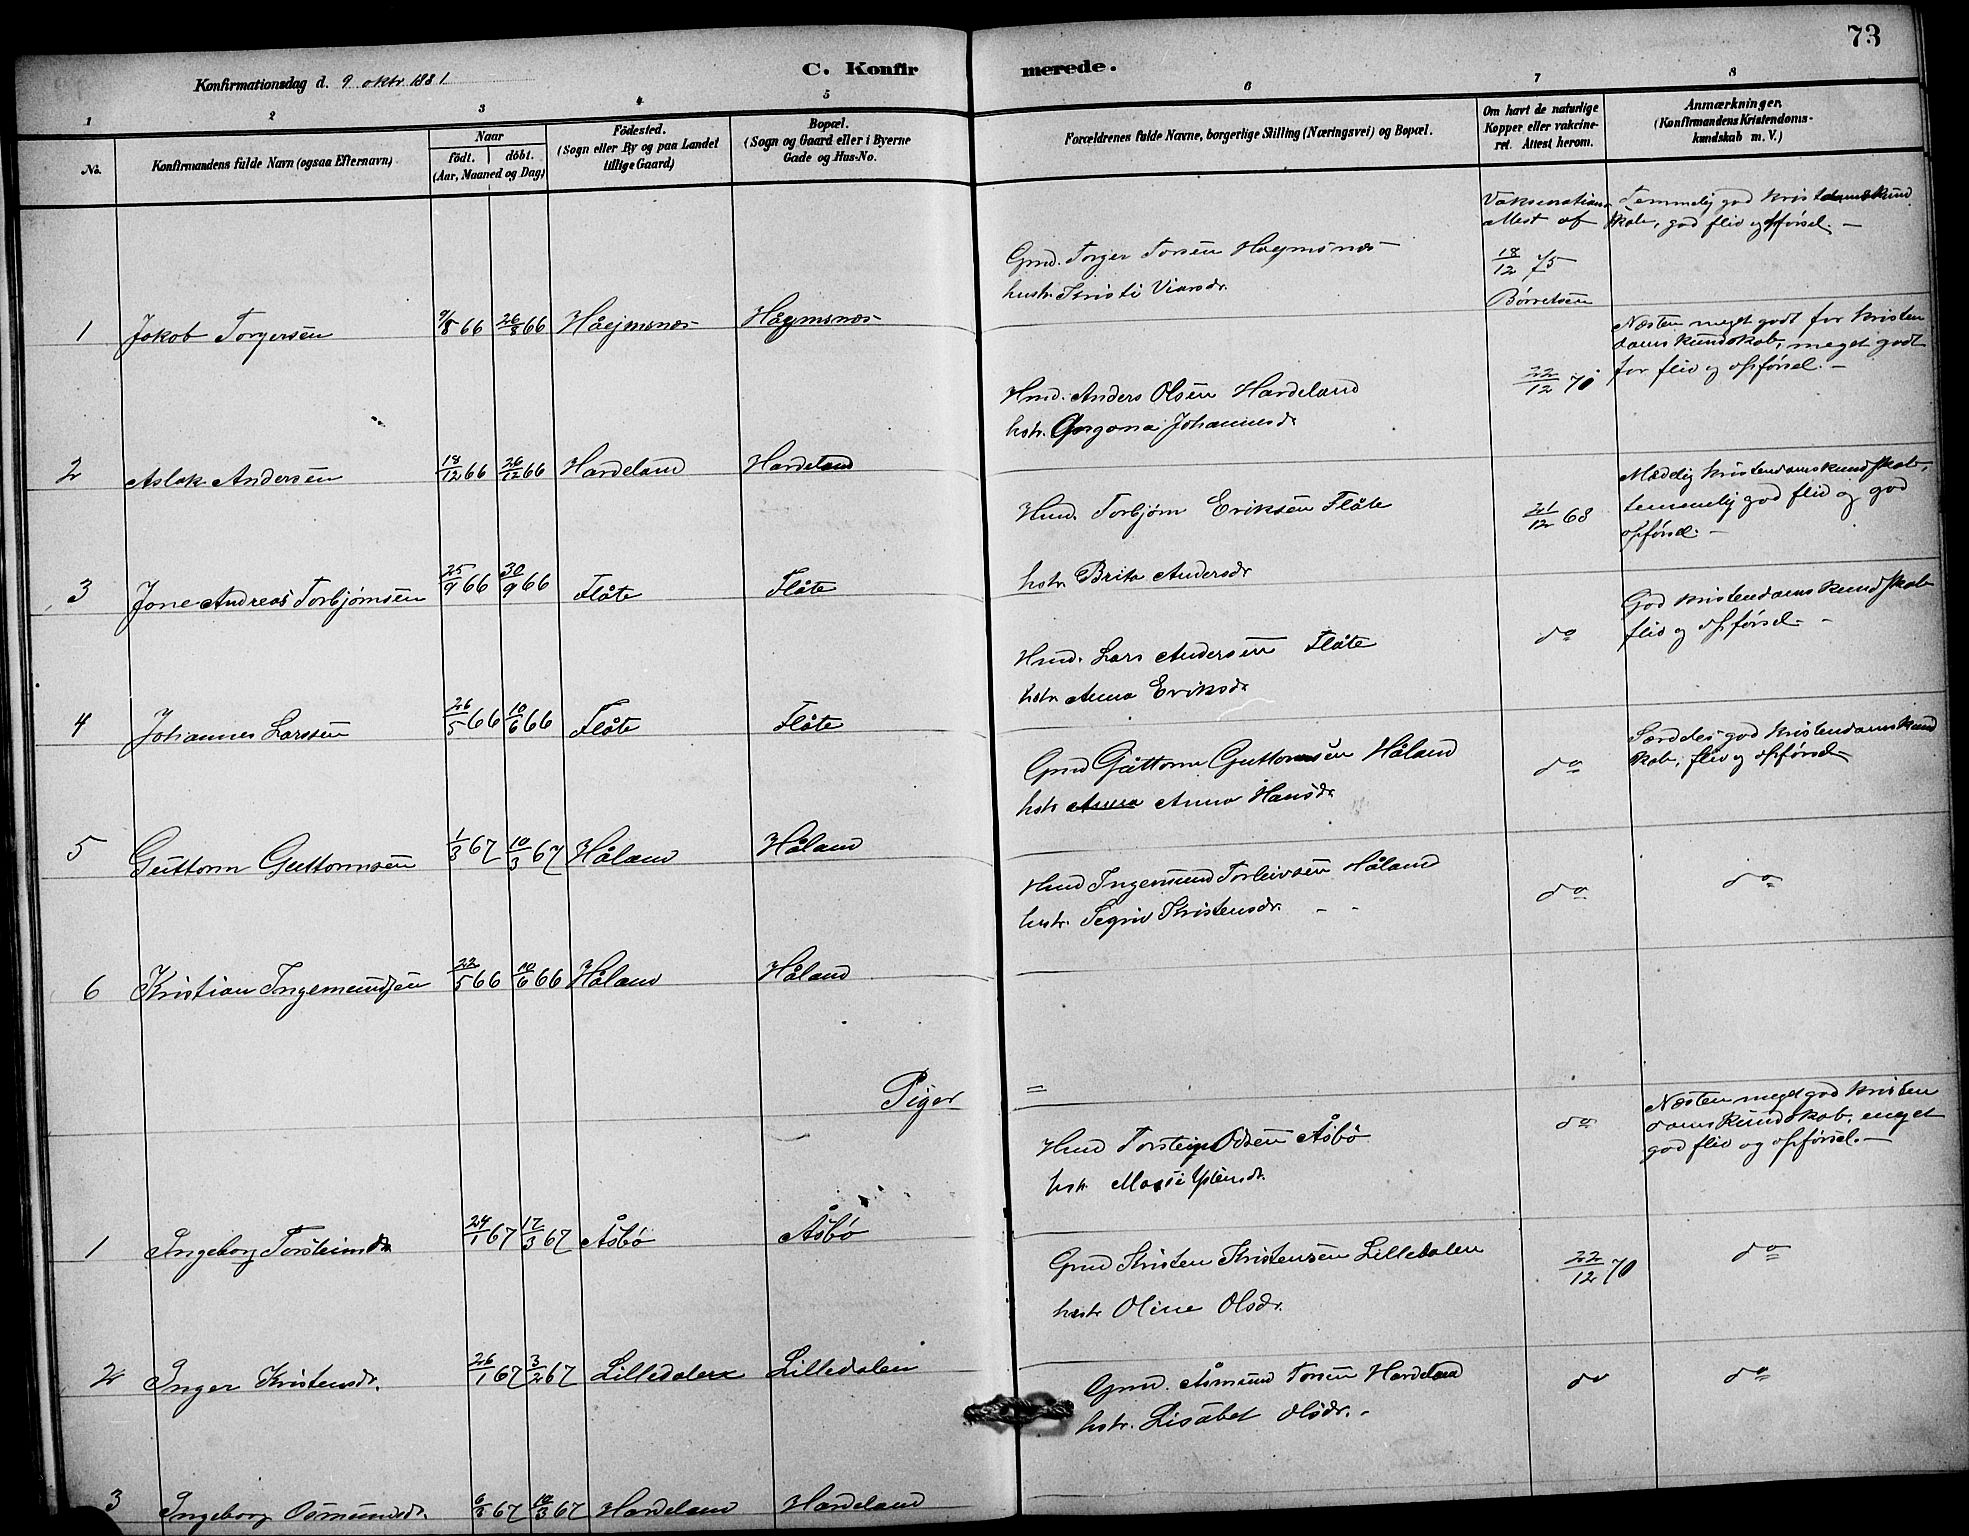 73
Konfirmationsdag d. 9 oktr 1881
C. Konfirmerede.
1 2 3 4 5 6 7 8
No.
Konfirmandens fulde Navn (ogsaa Efternavn)
Naar
födt. döbt.
(Aar, Maaned og Dag)
Födested.
(Sogn eller By og paa Landet
tillige Gaard)
Bopæl.
(Sogn og Gaard eller i Byerne
Gade og Hus-No.
Forældrenes fulde Navne, borgerlige Stilling (Næringsvei) og Bopæl.
Om havt de naturlige
Kopper, eller vakcine-
ret. Attest herom.
Anmærkninger.
(Konfirmandens Kristendoms-
kundskab m. V.)
1 Jakob Torgersen 9/8 66 26/8 66 Håejmsnæs Högmsnæs
Gmd. Torger Torsen Högmsnæs
hustr. Kristi Viersdr.
Vaksinations
attest af
18/12 75
Börretsen
Temmelig god Kristendomskund
skab, god flid og opförsel. —
2 Aslak Andersen 18/12 66 26/12 66 Hardeland Hardeland
Hmd. Anders Olsen Hardeland
hstr. Gorgona Johannesdr.
22/12 70
Næsten meget godt for Kristen
doms kundskab, meget godt
for flid og opförsel. —
3 Jone Andreas Torbjørnsen 25/9 66 30/9 66 Flåte Flåte
Hmd. Torbjørn Eriksen Flåte
hstr Brita Andersdr
21/12 68
Maadelig Kristendomskundskab,
temmelig god flid og god
opförsel. —
4 Johannes Larssen 26/5 66 10/6 66 Flåte Flåte
Hmd. Lars Andersen Flåte
hstr Anna Eriksdr
do
God Kristendomskundskab
flid og opförsel. —
5 Guttorm Guttormsen 1/3 67 10/3 67 Håland Håland
Gmd Guttorm Guttormsen Håland
hstr Anna Anna Hansdr
do
Særdeles god Kristendomskund
skab, flid og opförsel
6 Kristian Ingemundsen 22/5 66 10/6 66 Håland Håland
Hmd Ingemund Torleivsen Håland
hustr. Segrid Kristensdr. - -
do do
Piger =
1 Ingeborg Torsteinsdr. 24/1 67 17/3 67 Åsbö Åsbö
Hmd Torstein Odsen Åsbö
hstr Massi Ysteinsdr.
do
Næsten meget god Kristen
doms kundskab, meget
god flid og opförsel. —
2 Inger Kristensdr. 26/1 67 3/2 67 Lilledalen Lilledalen
Gmd Kristen Kristensen Lilledalen
hustr Oline Olsdr.
22/12 70 do
3 Ingeborg Osmundsdr. 6/3 67 10/3 67 Hardeland Hardeland
Gmd. Åsmund Torsen Hardeland
hstr. Lisabet Olsdr. -
do do